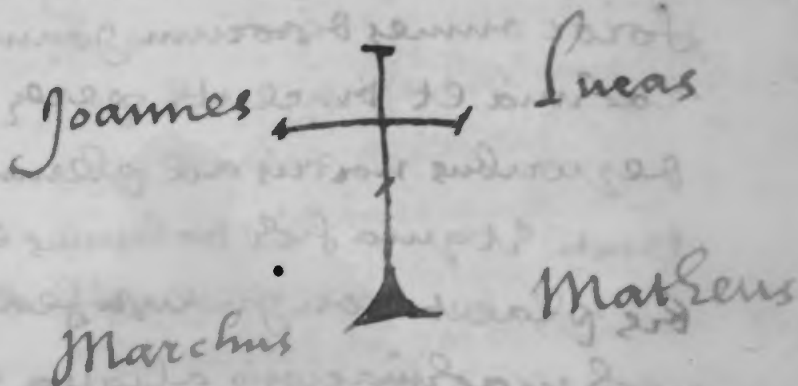 Joannes Lucas
Marchus Matheus